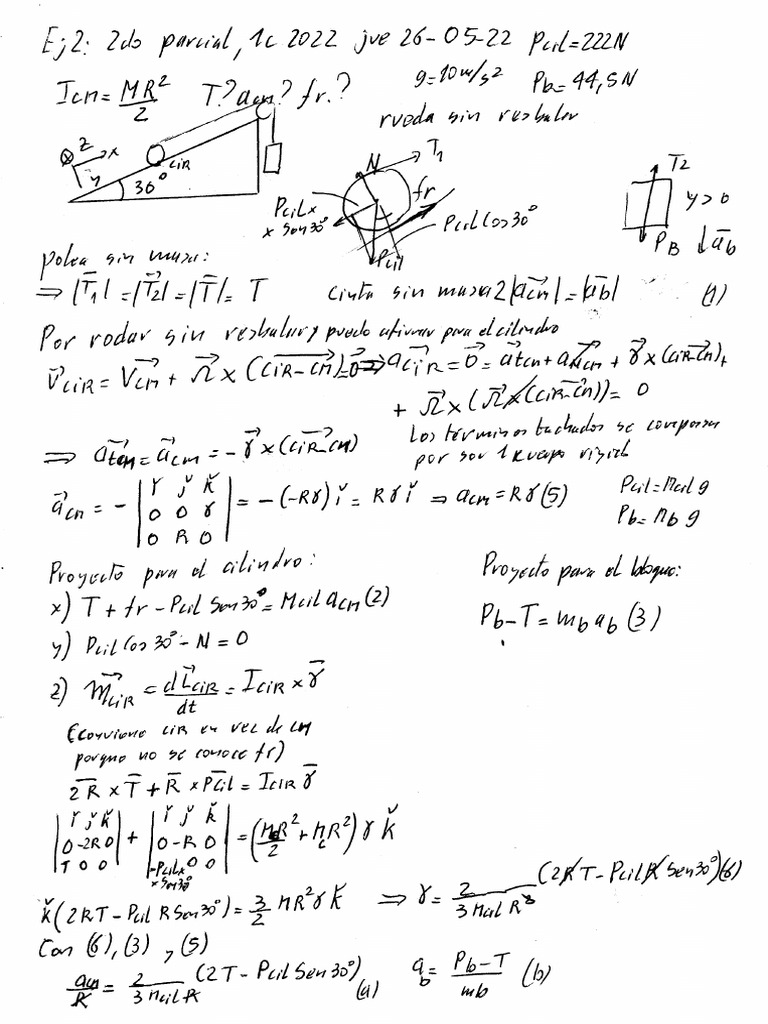 Ej2: 2do parcial, 1c 2022 jue 26-05-22 Pcil=222N
Icm=MR²/2 T? acm? fr.? g=10m/s² Pb=44,5N
rueda sin resbalar
z x y CIR 30°
N T1 fr Pcil x sen30° Pcil Pcil Cos30°
T2 y>0 PB ab
polea sin masa:
⇒ |T1|=|T2|=|T|= T cinta sin masa 2|acm|=|ab| (1)
Por rodar sin resbalar, puedo afirmar para el cilindro
VCIR = Vcm + Ω x (CIR-CM)=0 ⇒ aCIR=0=atcm+aNcm + γ x (CIR-CM)+
+ Ω x (Ω x (CIR-CM))= 0
⇒ atcm=acm=-γ x (CIR-CM)
Los términos tachados se compensan
por ser 1 cuerpo rígido
acm= - |i j k; 0 0 γ; 0 R 0| = -(-Rγ)i = Rγ i ⇒ acm=Rγ (5)
Pcil=Mcil g
Pb=Mb g
Proyecto para el cilindro: Proyecto para el bloque:
x) T + fr - Pcil Sen30°= Mcil acm (2) Pb-T=mb ab (3)
y) Pcil Cos 30°-N=0
z) MCIR = dLCIR/dt = ICIR x γ
(conviene CIR en vez de CM
porque no se conoce fr)
2R x T + R x Pcil = ICIR γ
|i j k; 0 -2R 0; T 0 0| + |i j k; 0 -R 0; -Pcil x sen30° 0 0| = (McR²/2 + McR²) γ k
k(2RT-Pcil R Sen30°)=3/2 MR²γ k ⇒ γ= 2/(3 Mcil R²) (2RT-Pcil R Sen30°)(6)
Con (6), (3) y (5)
acm/R = 2/(3 Mcil R) (2T-Pcil Sen30°) (a) ab= (Pb-T)/mb (b)